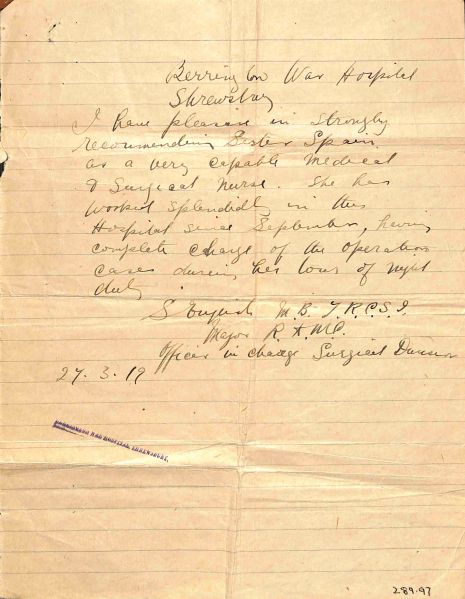 Berrington War Hospital
Shrewsbury
I have pleasure in strongly
recommending Sister Spain
as a very capable Medical
& Surgical Nurse. She has
worked splendidly in this
Hospital since September, having
complete charge of the operation
cases during her tour of night
duty
S English M.B. F.R.C.S.I.
Major R.A.M.C.
Officer in charge Surgical Division
27.3.19
BERRINGTON WAR HOSPITAL, SHREWSBURY.
289.97